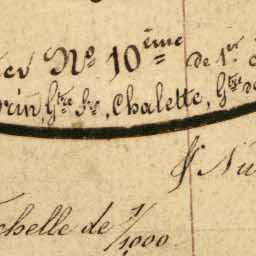 er Nº 10ème de 1er
rin, Gtre Fre, Chalette, Gtre
Nu
chelle de 1/1000